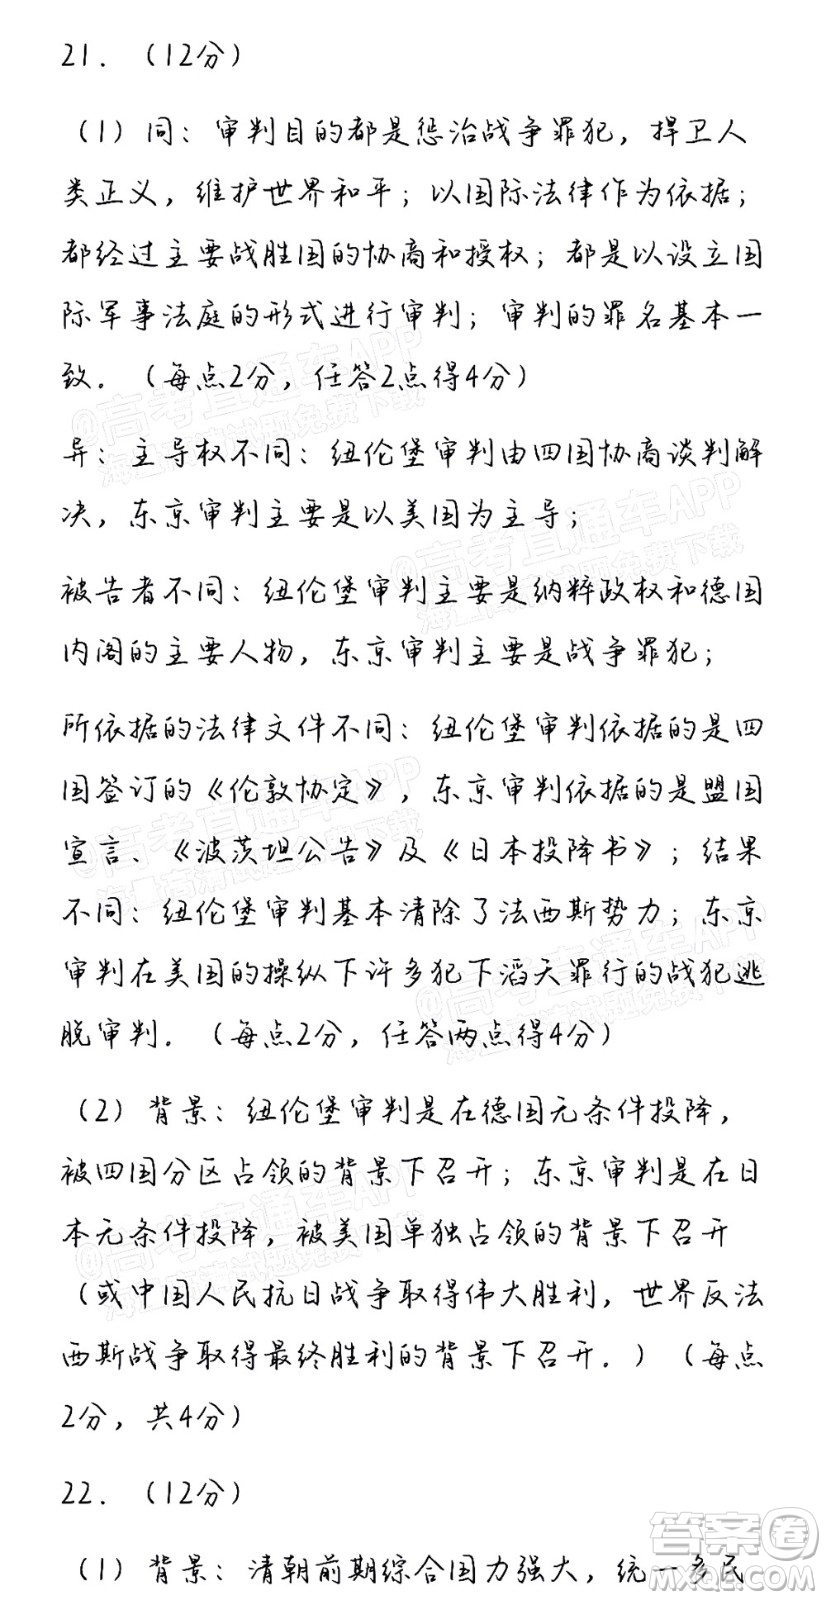 21. （12分）
（1）同：审判目的都是惩治战争罪犯，捍卫人
类正义，维护世界和平；以国际法律作为依据；
都经过主要战胜国的协商和授权；都是以设立国
际军事法庭的形式进行审判；审判的罪名基本一
致.（每点2分，任答2点得4分）
异：主导权不同：纽伦堡审判由四国协商谈判解
决，东京审判主要是以美国为主导；
被告者不同：纽伦堡审判主要是纳粹政权和德国
内阁的主要人物，东京审判主要是战争罪犯；
所依据的法律文件不同：纽伦堡审判依据的是四
国签订的《伦敦协定》，东京审判依据的是盟国
宣言、《波茨坦公告》及《日本投降书》；结果
不同：纽伦堡审判基本清除了法西斯势力；东京
审判在美国的操纵下许多犯下滔天罪行的战犯逃
脱审判.（每点2分，任答两点得4分）
（2）背景：纽伦堡审判是在德国无条件投降，
被四国分区占领的背景下召开；东京审判是在日
本无条件投降，被美国单独占领的背景下召开
（或中国人民抗日战争取得伟大胜利，世界反法
西斯战争取得最终胜利的背景下召开.）（每点
2分，共4分）
22. （12分）
（1）背景：清朝前期综合国力强大，统一多民
@高考直通车APP
海量高清试题免费下载
@高考直通车APP
海量高清试题免费下载
@高考直通车APP
海量高清试题免费下载
@高考直通车APP
海量高清试题免费下载
@高考直通车APP
海量高清试题免费下载
答案圈
MXQE.COM